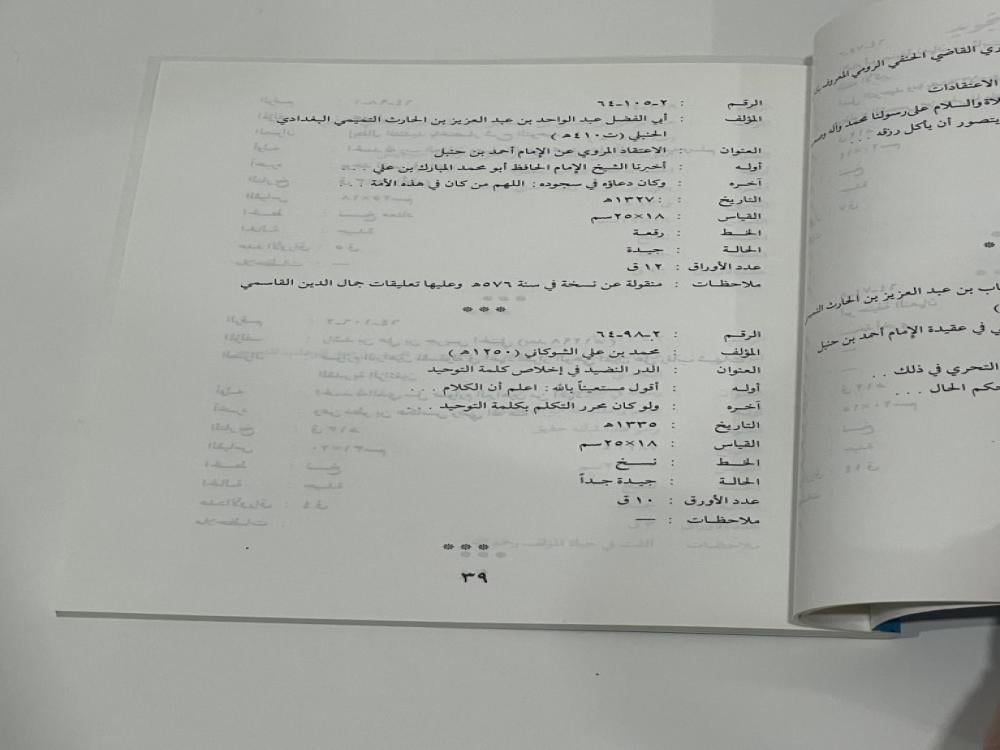 الرقم : ٢-١٠٥-٦٤
المؤلف : أبي الفضل عبد الواحد بن عبد العزيز بن الحارث التميمي البغدادي
الحنبلي (ت٤١٠هـ)
العنوان : الاعتقاد المروي عن الإمام أحمد بن حنبل
أوله : أخبرنا الشيخ الإمام الحافظ أبو محمد المبارك بن علي ...
آخره : وكان دعاؤه في سجوده: اللهم من كان في هذه الأمة ...
التاريخ : ١٣٢٧هـ
القياس : ١٨×٢٥سم
الخط : رقعة
الحالة : جيدة
عدد الأوراق : ١٢ ق
ملاحظات : منقولة عن نسخة في سنة ٥٧٦هـ وعليها تعليقات جمال الدين القاسمي
***
الرقم : ٢-٩٨-٦٤
المؤلف : محمد بن علي الشوكاني (١٢٥٠هـ)
العنوان : الدر النضيد في إخلاص كلمة التوحيد
أوله : أقول مستعيناً بالله: اعلم أن الكلام ...
آخره : ولو كان مجرد التكلم بكلمة التوحيد ...
التاريخ : ١٣٣٥هـ
القياس : ١٨×٢٥سم
الخط : نسخ
الحالة : جيدة جداً
عدد الأورق : ١٠ ق
ملاحظات : —
***
٣٩
القاضي الحنفي الرومي المعروف
الاعتقادات
والسلام على رسولنا محمد وآله
يتصور أن يأكل رزقه ...
*
بن عبد العزيز بن الحارث
في عقيدة الإمام أحمد بن حنبل
التحري في ذلك ..
حكم الحال ...